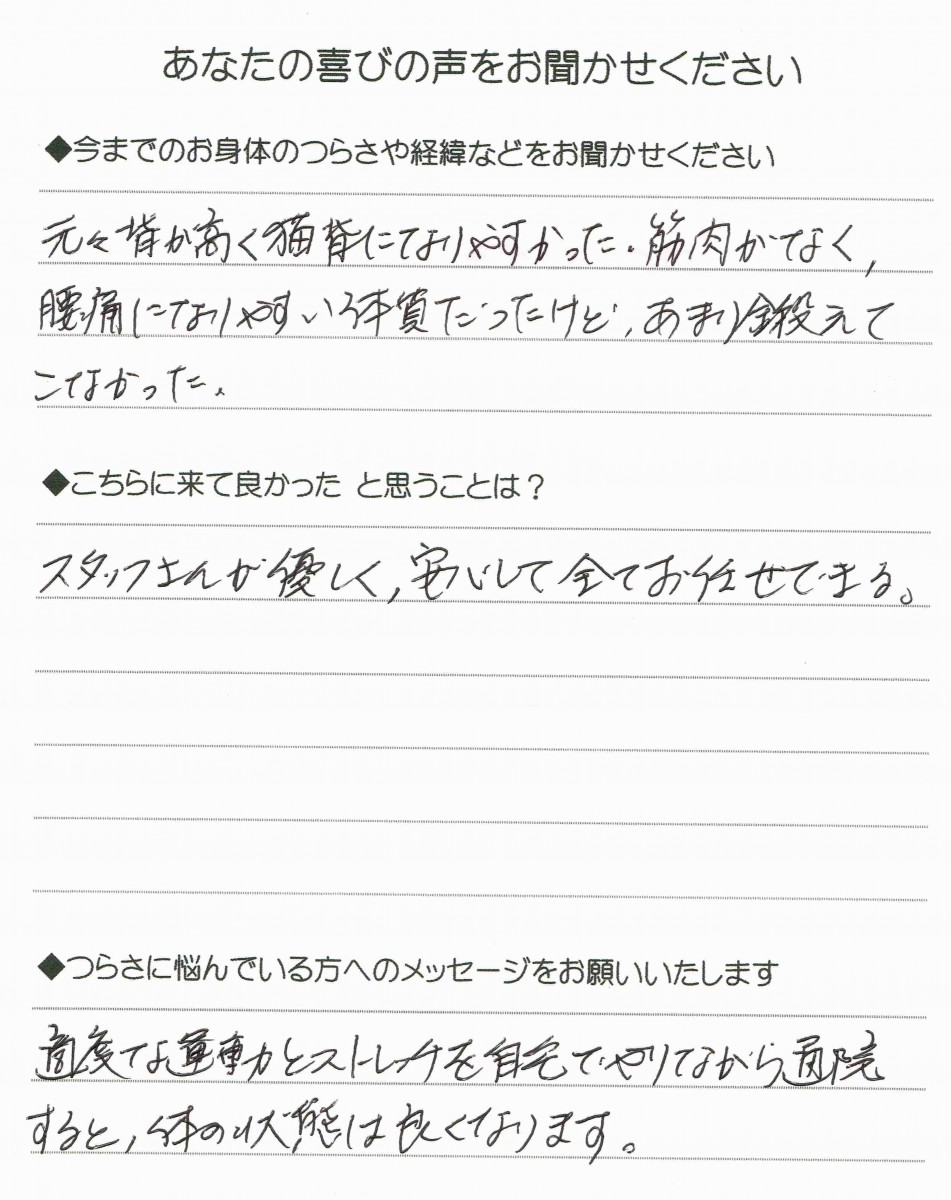 あなたの喜びの声をお聞かせください
◆今までのお身体のつらさや経緯などをお聞かせください
元々背が高く猫背になりやすかった。筋肉がなく,
腰痛になりやすい体質だったけど, あまり鍛えて
こなかった。
◆こちらに来て良かった と思うことは？
スタッフさんが優しく, 安心して全てお任せできる。
◆つらさに悩んでいる方へのメッセージをお願いいたします
適度な運動とストレッチを自宅でやりながら通院
すると, 体の状態は良くなります。